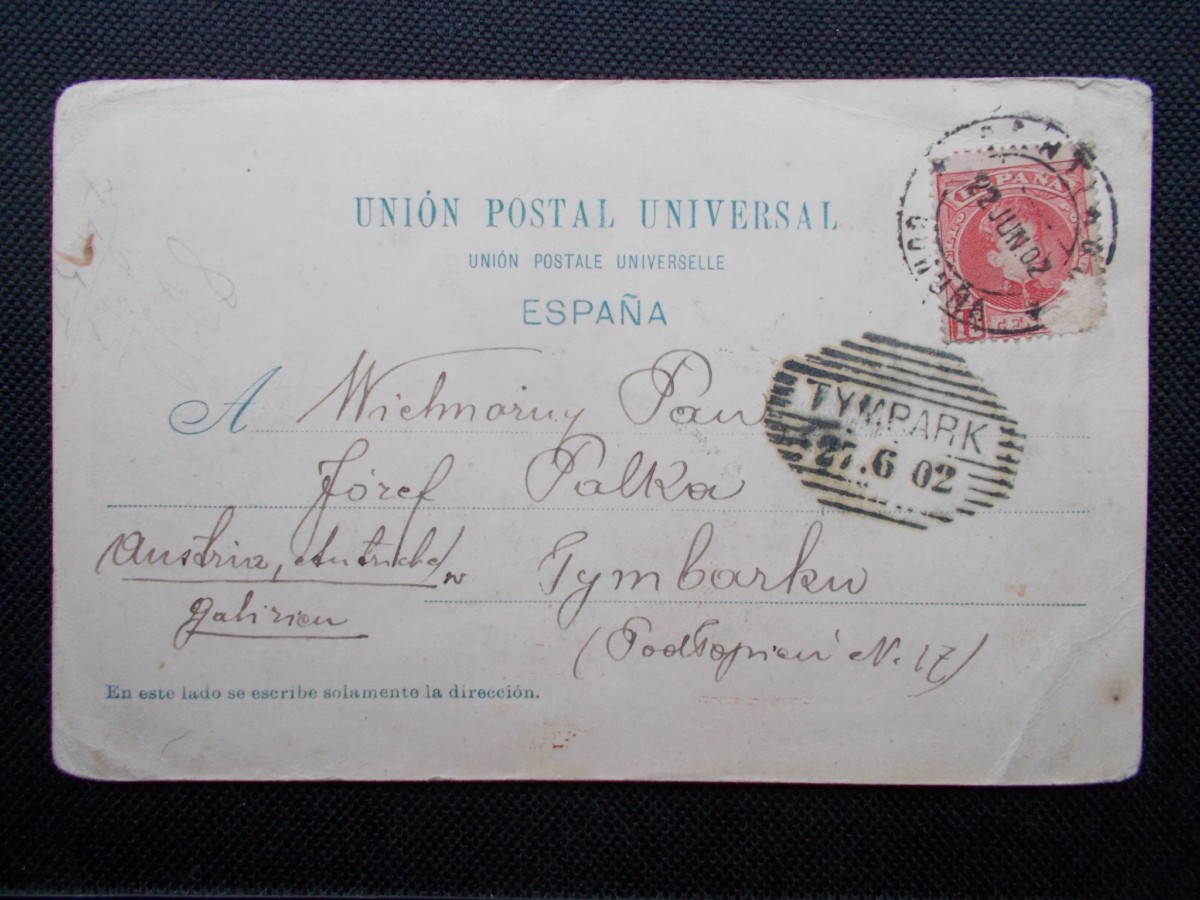 UNIÓN POSTAL UNIVERSAL
UNIÓN POSTALE UNIVERSELLE
ESPAÑA
ESPAÑA
22 JUN 02
CORUÑA
TYMBARK
27.6 02
A Wielmożny Pan
Józef Palka
(Austria, Autriche) w Tymbarku
Galizien
(Podłopień N. 17)
En este lado se escribe solamente la dirección.